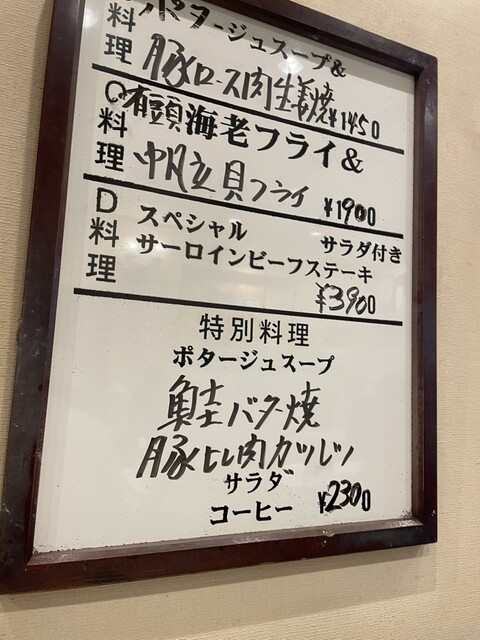 料理 ポタージュスープ&
豚ロース肉生姜焼 ¥1450
C料理 有頭海老フライ&
帆立貝フライ
¥1900
D料理 スペシャル サラダ付き
サーロインビーフステーキ
¥3900
特別料理
ポタージュスープ
鮭バタ焼
豚ヒレ肉カツレツ
サラダ
コーヒー ¥2300